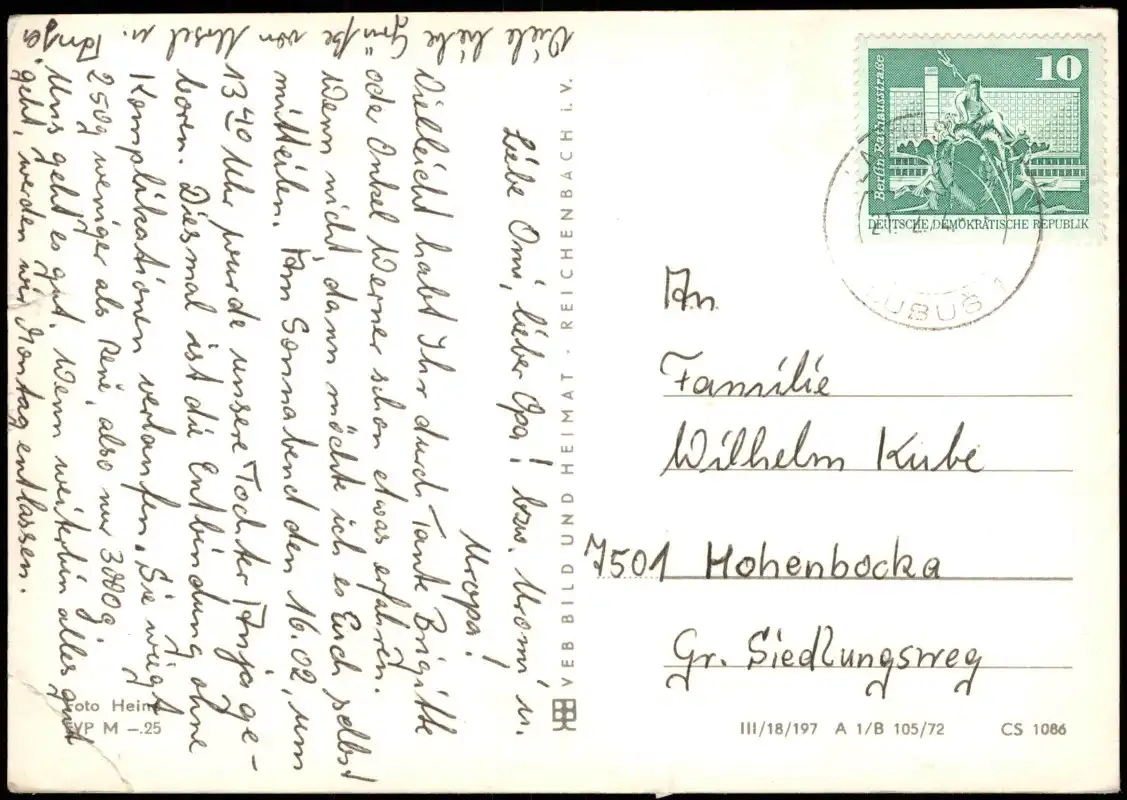 Liebe Omi, lieber Opa! bzw. Uromi u.
Uropa!
Vielleicht habt Ihr durch Tante Brigitte
oder Onkel Werner schon etwas erfahren.
Wenn nicht, dann möchte ich es Euch selbst
mitteilen. Am Sonnabend den 16.02, um
13 40 Uhr wurde unsere Tochter Tanja ge-
boren. Diesmal ist die Entbindung ohne
Komplikationen verlaufen. Sie wiegt
250g weniger als René, also nur 3000g.
Uns geht es gut. Wenn weiterhin alles gut
geht, werden wir Montag entlassen.
Viele liebe Grüße von u. Tanja
VEB BILD UND HEIMAT · REICHENBACH i. V.
10
Berlin, Rathausstraße
DEUTSCHE DEMOKRATISCHE REPUBLIK
An
Familie
Wilhelm Kube
7501 Hohenbocka
Gr. Siedlungsweg
Foto
EVP M —.25
III/18/197 A 1/B 105/72 CS 1086